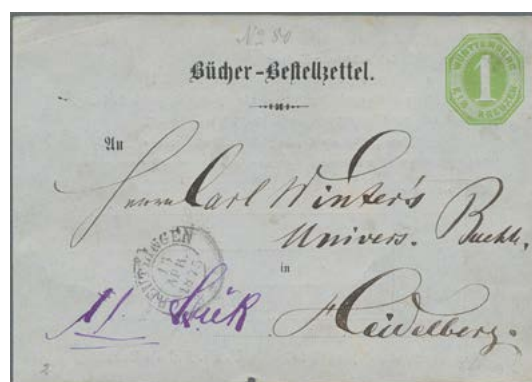 No 80
Bücher-Bestellzettel.
WÜRTTEMBERG
1
EIN KREUZER
An
Herrn Carl Winter's
Univers. Buchh.
in
Heidelberg.
REUTLINGEN
17
APR.
1875
2